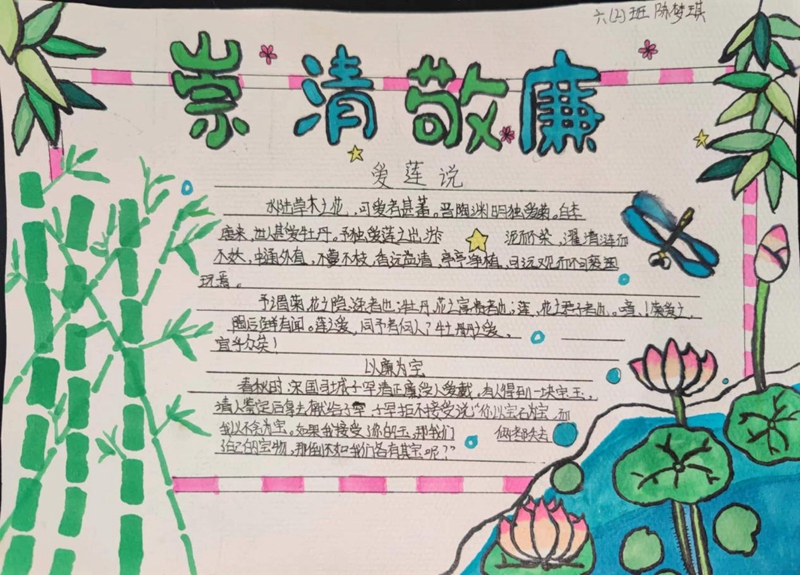 六(2)班 陈梦琪
崇清敬廉
爱莲说
水陆草木之花，可爱者甚蕃。晋陶渊明独爱菊。自李
唐来，世人甚爱牡丹，予独爱莲之出淤 泥而不染，濯清涟而
不妖，中通外直，不蔓不枝，香远益清，亭亭净植，可远观而不可亵
玩焉。
予谓菊，花之隐逸者也；牡丹，花之富贵者也；莲，花之君子者也。噫！菊之爱，
陶后鲜有闻。莲之爱，同予者何人？牡丹之爱，
宜乎众矣！
以廉为宝
春秋时 宋国司城子罕清正廉 受人爱戴，有人得到一块宝玉，
请人鉴定后拿去献给子罕 子罕拒不接受说"你以宝石为宝，而
我以不贪为宝。如果我接受了你的玉，那我们 俩都失去
自己的宝物，那倒不如我们各有其宝呢？"